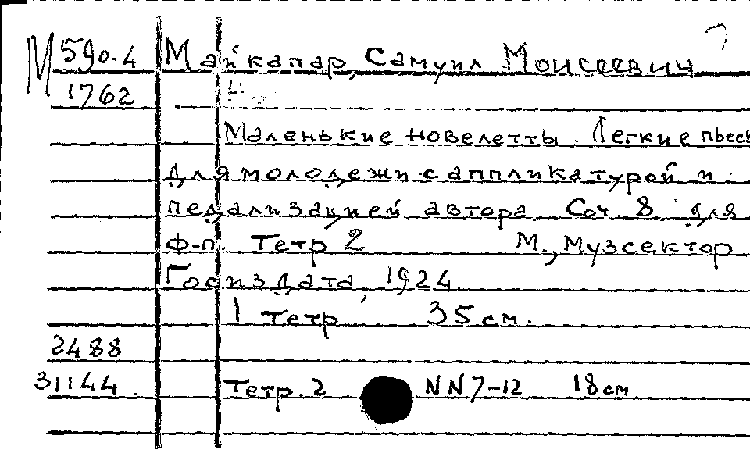 М 590-4 Майкапар, Самуил Моисеевич
1762
Маленькие новелетты. Легкие пьесы
для молодежи с аппликатурой и
педализацией автора. Соч 8 для
ф-п. Тетр 2 М., Музсектор
Госиздата, 1924
1 тетр 35 см.
2488
31144 Тетр. 2 NN 7-12 18 см